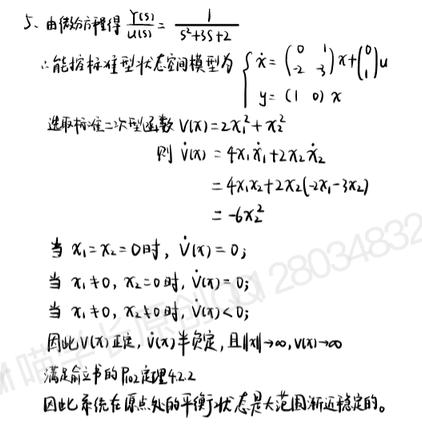 5、由微分方程得 Y(s)/U(s) = 1/(s²+3s+2)
∴能控标准型状态空间模型为 { ẋ = (0 1; -2 -3)x + (0; 1)u
y = (1 0)x
选取标准二次型函数 V(x)=2x₁²+x₂²
则 V̇(x) = 4x₁ẋ₁+2x₂ẋ₂
= 4x₁x₂+2x₂(-2x₁-3x₂)
= -6x₂²
当 x₁=x₂=0时, V̇(x)=0;
当 x₁≠0, x₂=0时, V̇(x)=0;
当 x₁≠0, x₂≠0时, V̇(x)<0;
因此V(x)正定, V̇(x)半负定, 且||x||→∞, V(x)→∞
满足俞立书的P102定理4.2.2
因此系统在原点处的平衡状态是大范围渐近稳定的。
28034832